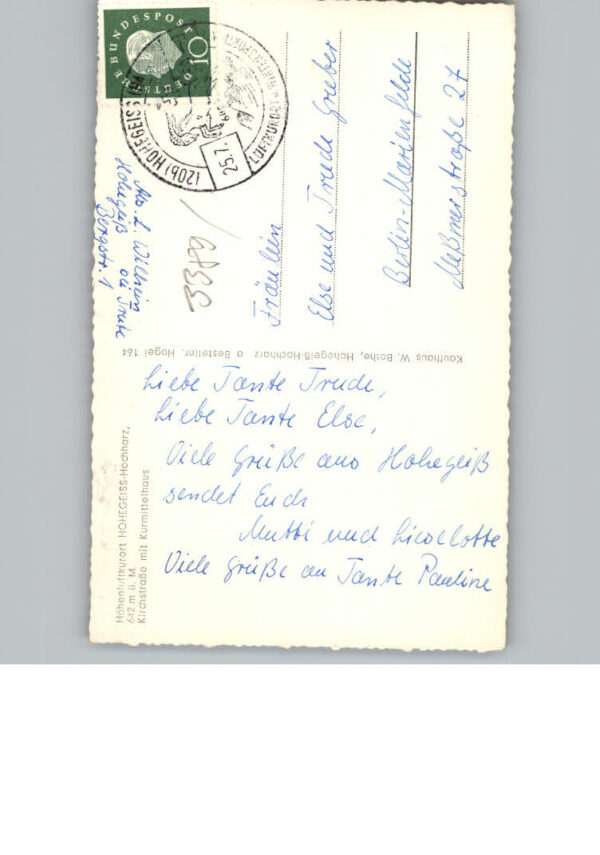 Liebe Tante Trude,
Liebe Tante Else,
Viele Grüße aus Hohegeiß
sendet Euch
Mutti und Liselotte
Viele Grüße an Tante Pauline
Fräulein
Else und Trude Greber
Berlin-Marienfelde
Meßmerstraße 27
Abs. L. Wilhelm
Hohegeiß
Bergstr. 1
DEUTSCHE BUNDESPOST
10
(20b) HOHEGEISS
25.7.
LUFTKURORT
WINTERSPORT
Kaufhaus W. Bothe, Hohegeiß-Hochharz a Bestellnr. Hogei 164
Höhenluftkurort HOHEGEISS-Hochharz,
642 m ü. M.
Kirchstraße mit Kurmittelhaus